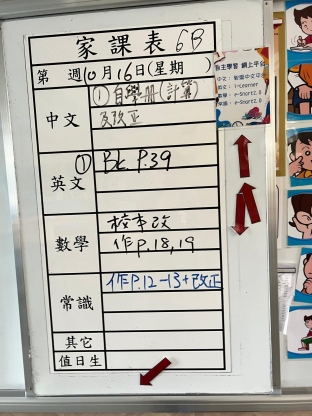 家課表 6B
第 週10月16日(星期 )
中文
①自學冊(計算)
及改正
英文
① Bk P.39
數學
校本改
作P.18,19
常識
作P.12-13+改正
其它
值日生
自主學習 網上平台